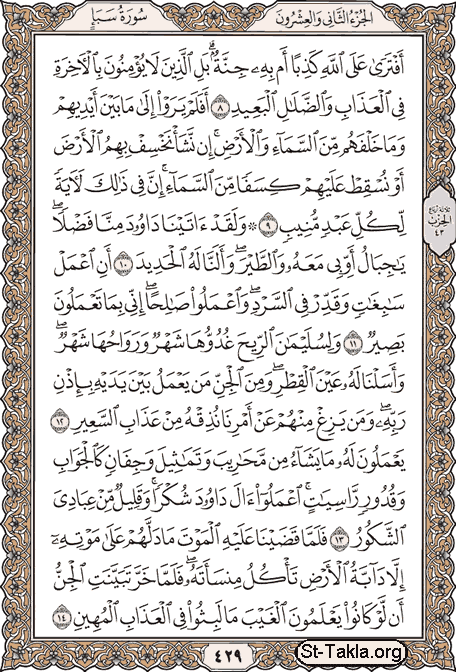 الجزء الثاني والعشرون
سورة سبإ
أَفْتَرَىٰ عَلَى ٱللَّهِ كَذِبًا أَم بِهِۦ جِنَّةٌۢ ۗ بَلِ ٱلَّذِينَ لَا يُؤْمِنُونَ بِٱلْـَٔاخِرَةِ
فِى ٱلْعَذَابِ وَٱلضَّلَـٰلِ ٱلْبَعِيدِ ٨ أَفَلَمْ يَرَوْا۟ إِلَىٰ مَا بَيْنَ أَيْدِيهِمْ
وَمَا خَلْفَهُم مِّنَ ٱلسَّمَآءِ وَٱلْأَرْضِ ۚ إِن نَّشَأْ نَخْسِفْ بِهِمُ ٱلْأَرْضَ
أَوْ نُسْقِطْ عَلَيْهِمْ كِسَفًا مِّنَ ٱلسَّمَآءِ ۚ إِنَّ فِى ذَٰلِكَ لَـَٔايَةً
لِّكُلِّ عَبْدٍ مُّنِيبٍ ٩ ۞ وَلَقَدْ ءَاتَيْنَا دَاوُۥدَ مِنَّا فَضْلًا ۖ
يَـٰجِبَالُ أَوِّبِى مَعَهُۥ وَٱلطَّيْرَ ۖ وَأَلَنَّا لَهُ ٱلْحَدِيدَ ١٠ أَنِ ٱعْمَلْ
سَـٰبِغَـٰتٍ وَقَدِّرْ فِى ٱلسَّرْدِ ۖ وَٱعْمَلُوا۟ صَـٰلِحًا ۖ إِنِّى بِمَا تَعْمَلُونَ
بَصِيرٌ ١١ وَلِسُلَيْمَـٰنَ ٱلرِّيحَ غُدُوُّهَا شَهْرٌ وَرَوَاحُهَا شَهْرٌ ۖ
وَأَسَلْنَا لَهُۥ عَيْنَ ٱلْقِطْرِ ۖ وَمِنَ ٱلْجِنِّ مَن يَعْمَلُ بَيْنَ يَدَيْهِ بِإِذْنِ
رَبِّهِۦ ۖ وَمَن يَزِغْ مِنْهُمْ عَنْ أَمْرِنَا نُذِقْهُ مِنْ عَذَابِ ٱلسَّعِيرِ ١٢
يَعْمَلُونَ لَهُۥ مَا يَشَآءُ مِن مَّحَـٰرِيبَ وَتَمَـٰثِيلَ وَجِفَانٍ كَٱلْجَوَابِ
وَقُدُورٍ رَّاسِيَـٰتٍ ۚ ٱعْمَلُوٓا۟ ءَالَ دَاوُۥدَ شُكْرًا ۚ وَقَلِيلٌ مِّنْ عِبَادِىَ
ٱلشَّكُورُ ١٣ فَلَمَّا قَضَيْنَا عَلَيْهِ ٱلْمَوْتَ مَا دَلَّهُمْ عَلَىٰ مَوْتِهِۦٓ
إِلَّا دَآبَّةُ ٱلْأَرْضِ تَأْكُلُ مِنسَأَتَهُۥ ۖ فَلَمَّا خَرَّ تَبَيَّنَتِ ٱلْجِنُّ
أَن لَّوْ كَانُوا۟ يَعْلَمُونَ ٱلْغَيْبَ مَا لَبِثُوا۟ فِى ٱلْعَذَابِ ٱلْمُهِينِ ١٤
الحزب
٤٣
٤٢٩
St-Takla.org